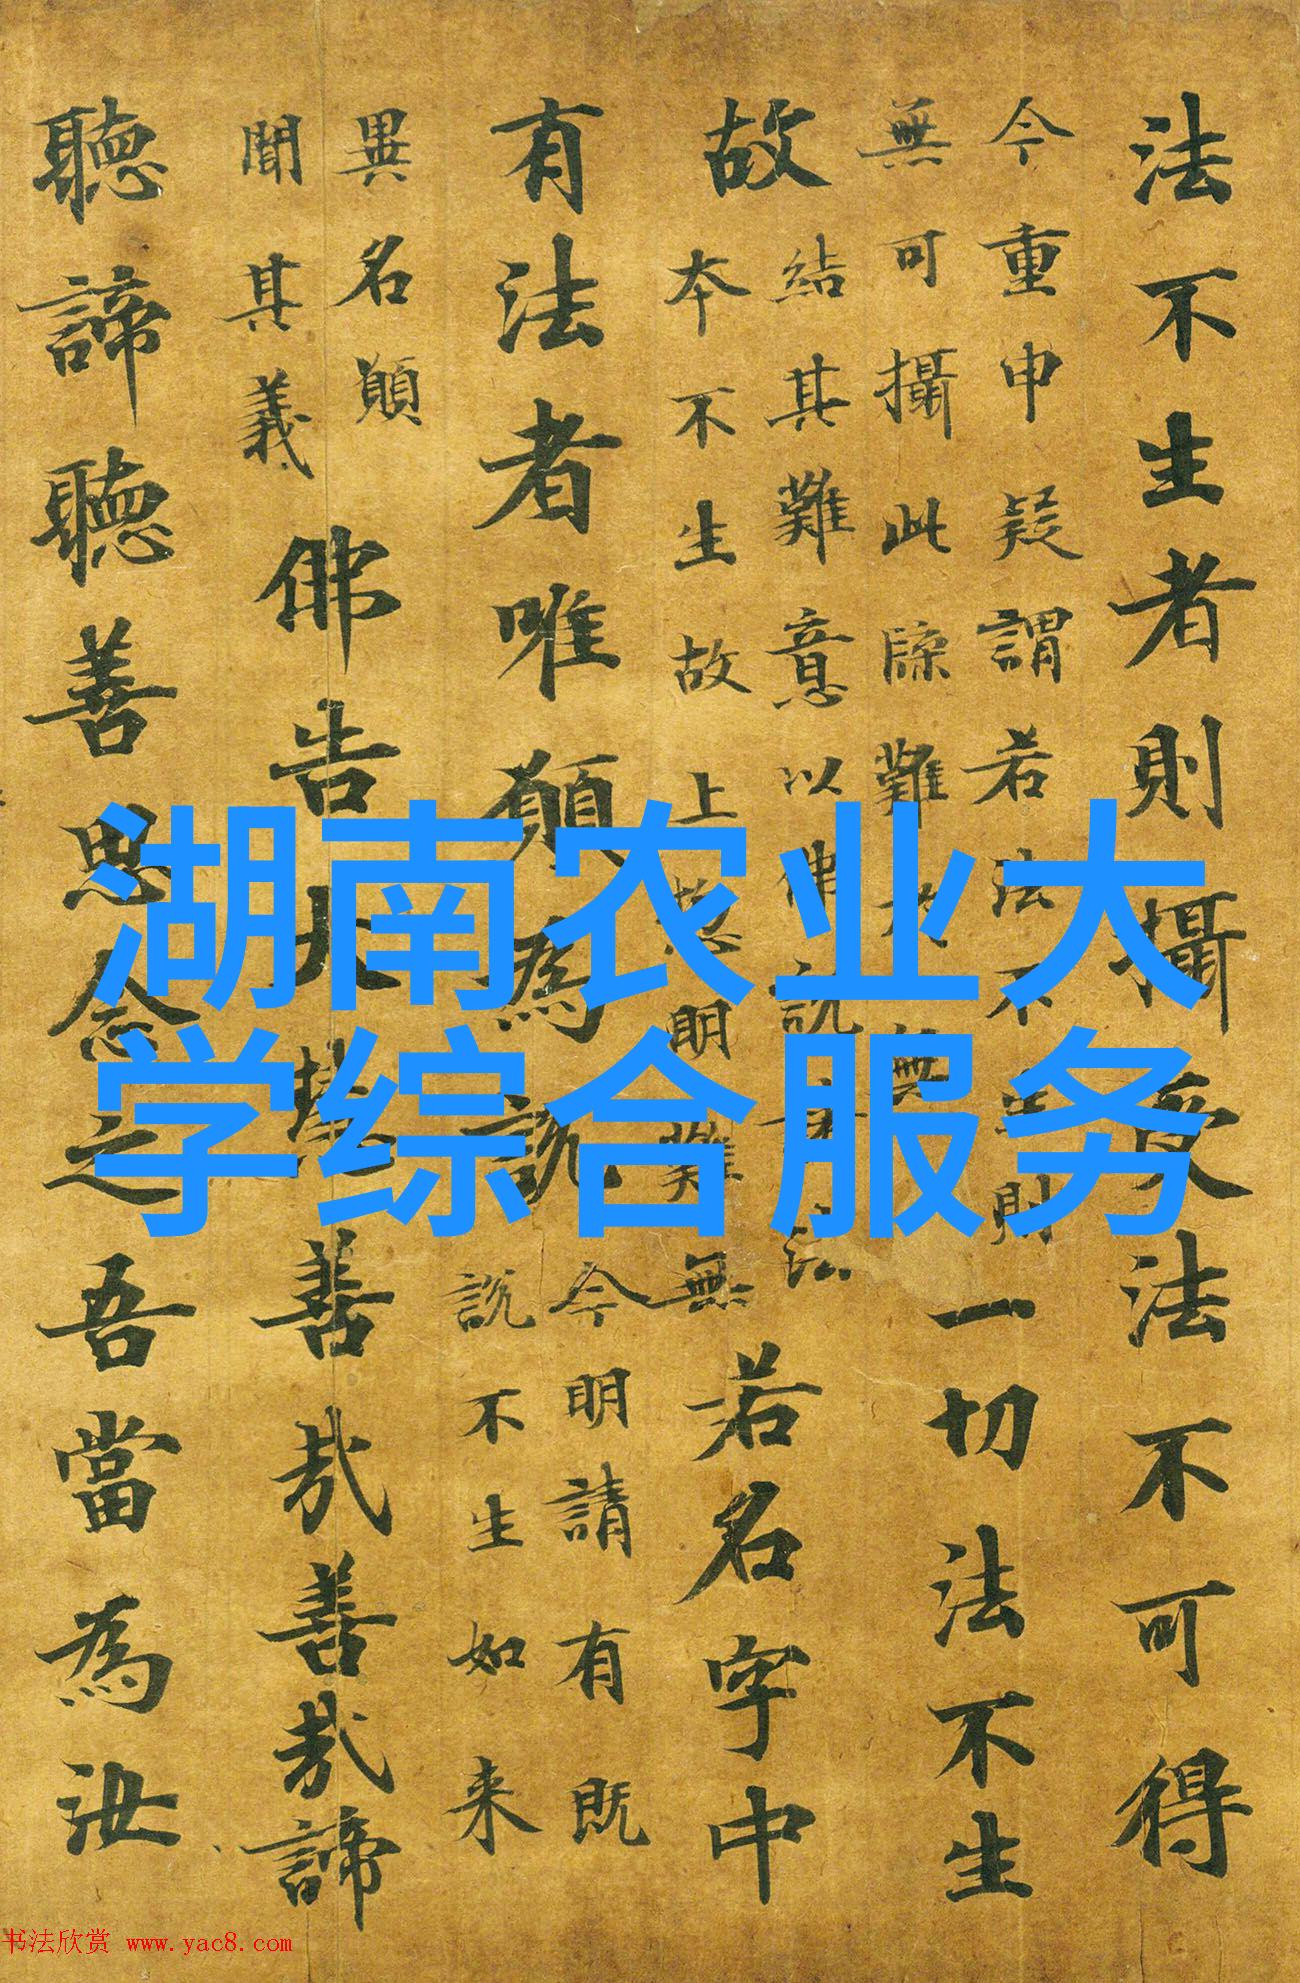 湖南农业大
学综合服务
法不生者則攝受法不可得
今重申疑謂若法不生則
無可攝此牒難無
一切法不生
故
結其難意以佛說法
本不生故上明難無
若名字中
有法者唯願為說
今明請有既
說不生如来
異名願
聞其義
佛告大慧善哉善哉諦
聽諦聽善思念之吾當為汝
书法欣赏 www.yac8.com